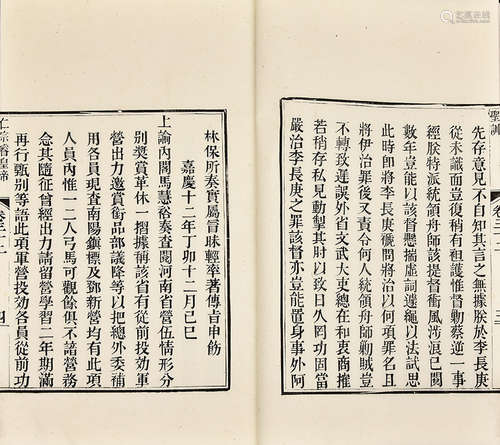 聖訓
先存意見不自知其言之無據朕於李長庚
從未識面豈復稍有袒護惟督勦蔡逆一事
經朕特派統領舟師該提督衝風涉浪已閱
數年豈能以該督懸揣虛詞遽繩以法試思
此時即將李長庚褫問將治以何項罪名且
將伊治罪後又責令何人統領舟師勦賊豈
不轉致遲誤外省文武大吏總在和衷商搉
若稍存私見動掣其肘以致日久罔功固當
嚴治李長庚之罪該督亦豈能置身事外阿
卷三十二
三
林保所奏實屬冒昧輕率著傳旨申飭
嘉慶十二年丁卯十二月己巳
上諭內閣馬慧裕奏查閱河南省營伍情形分
別獎賞革休一摺據稱該省有從前投効軍
營出力邀賞銜品部議降等以把總外委補
用各員現查南陽鎮標及鄧新營均有此項
人員內惟一二人弓馬可觀餘俱不諳營務
念其隨征曾經出力請留營學習二年期滿
再行甄別等語此項軍營投効各員從前功
仁宗睿皇帝
卷三十二
四